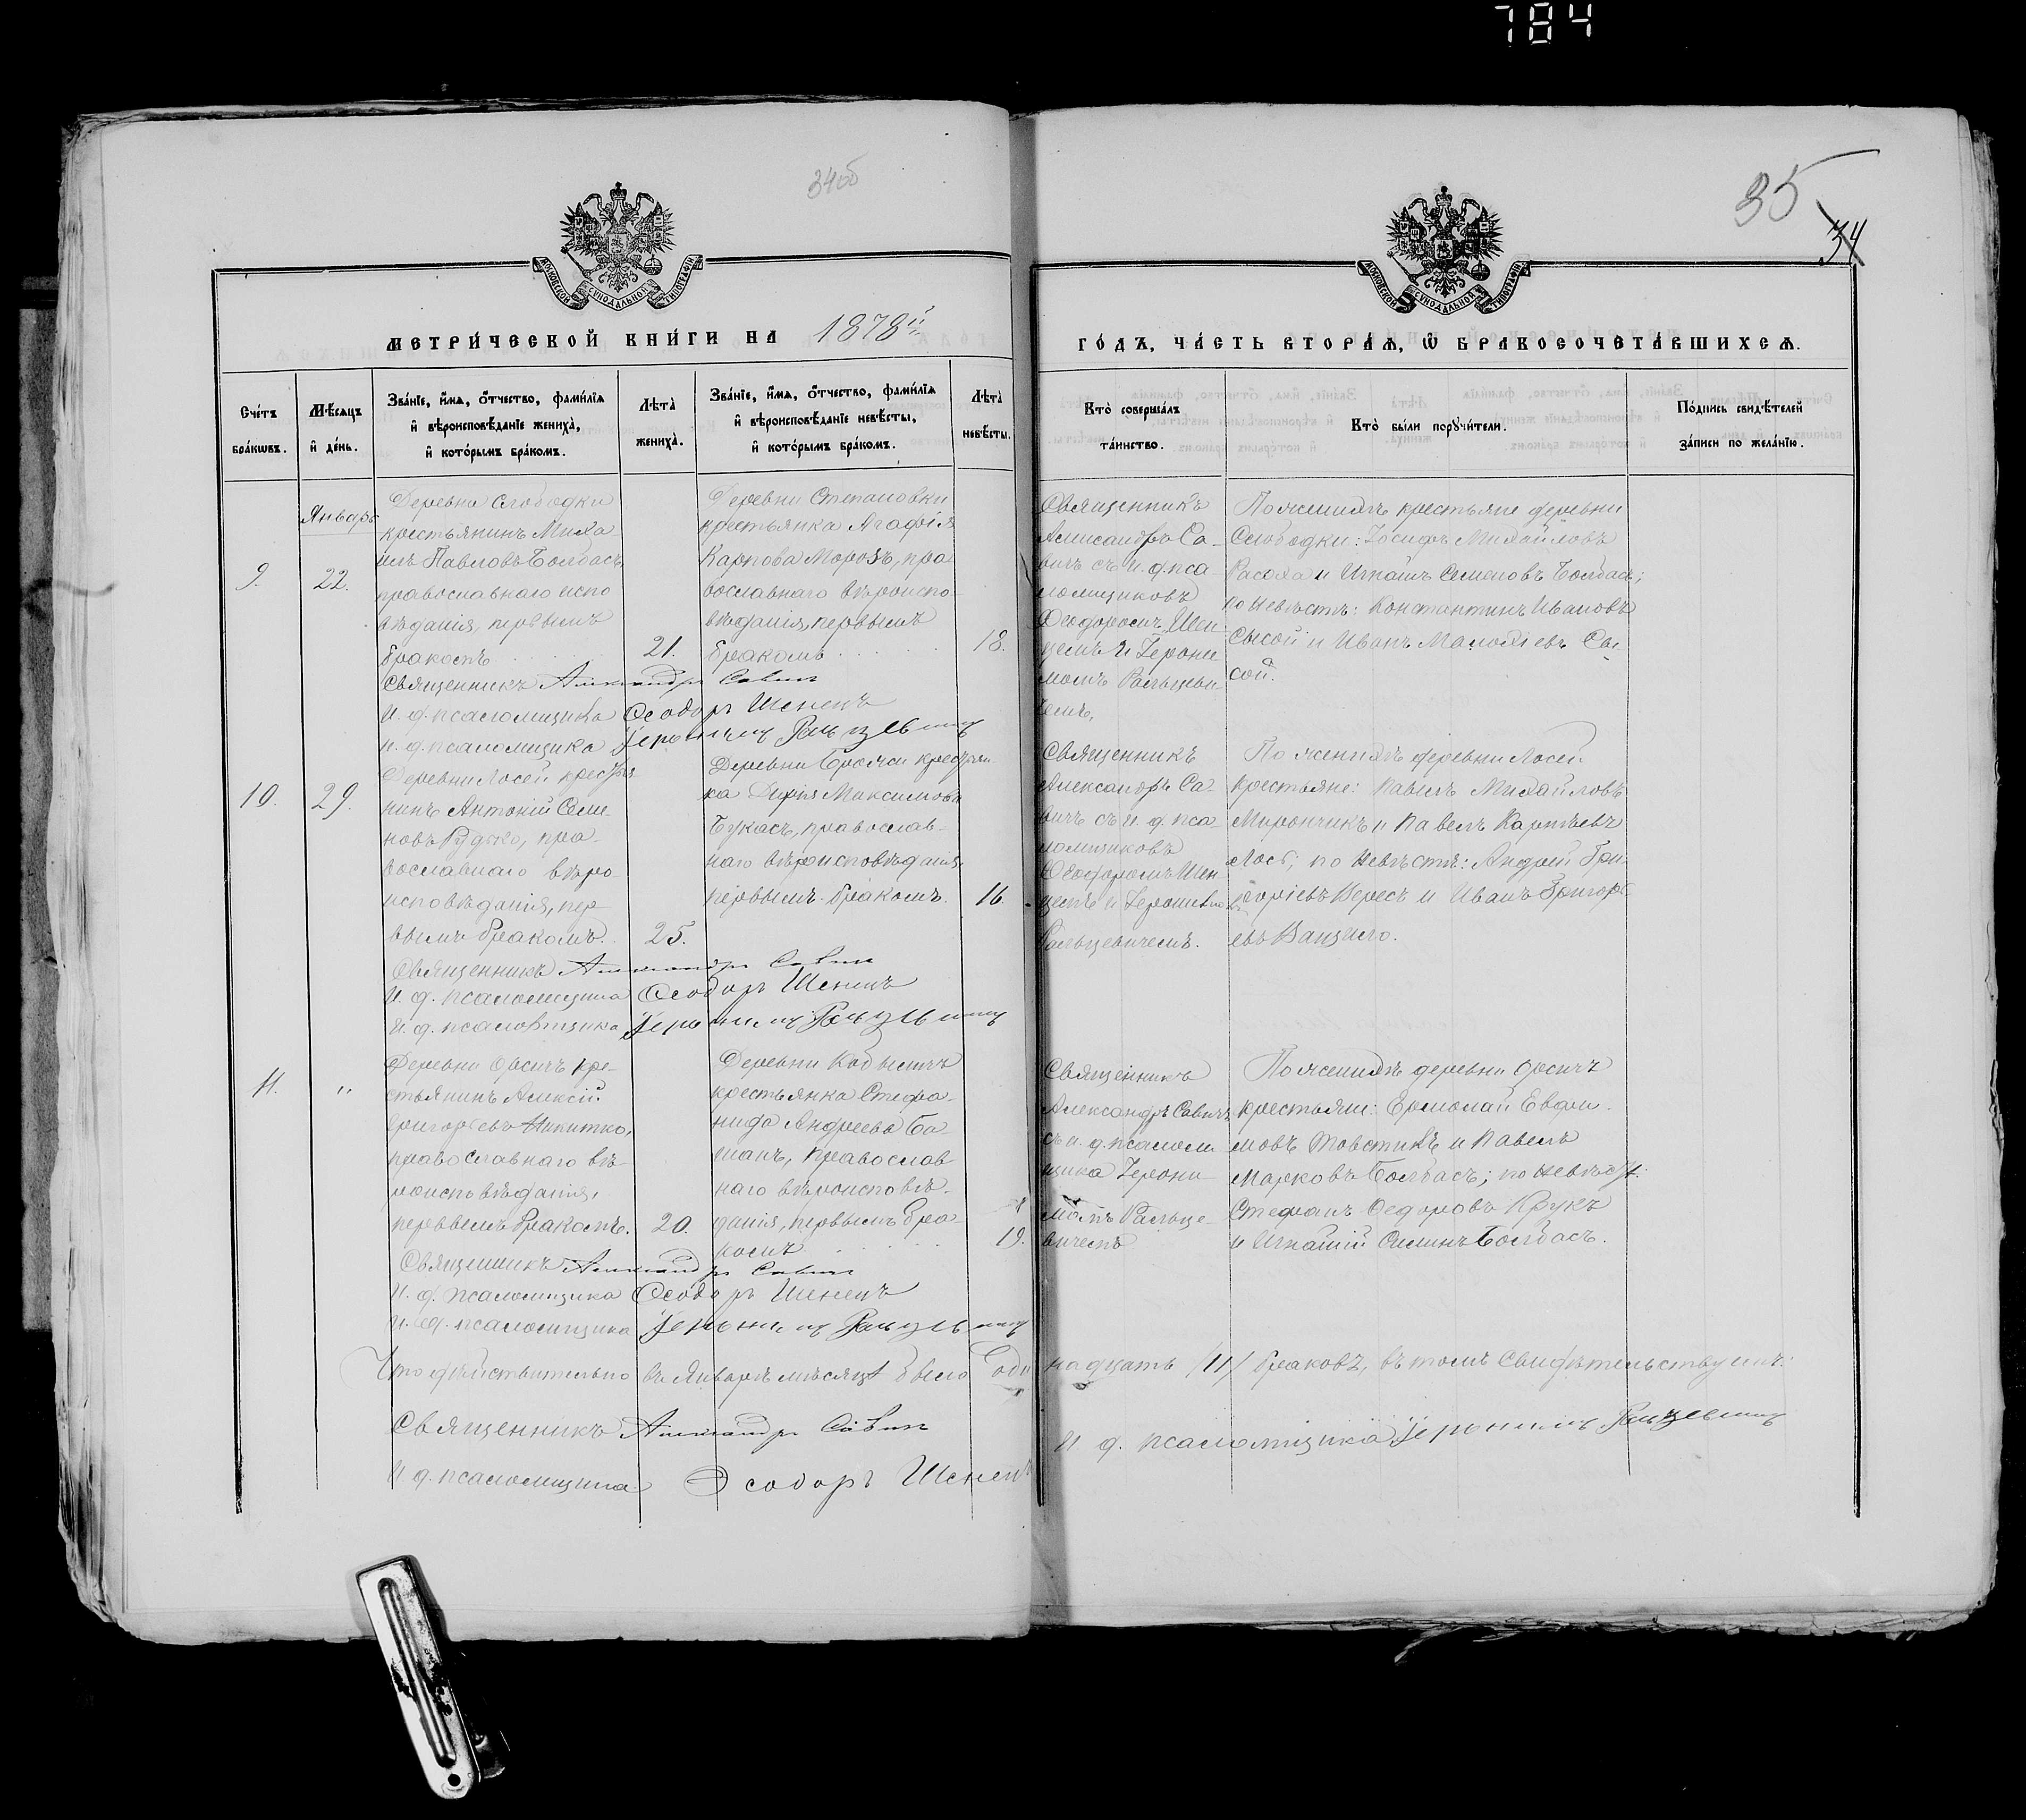 784
34об
35
34
МОСКОВСКОЙ СѴНОДАЛЬНОЙ ТИПОГРАФІИ
МОСКОВСКОЙ СѴНОДАЛЬНОЙ ТИПОГРАФІИ
МЕТРИ́ЧЕСКОЙ КНИ́ГИ НА 1878й
ГО́ДЪ, ЧА́СТЬ ВТОРА́Ѧ, Ѿ БРАКОСОЧЕТА́ВШИХСѦ.
Сче́тъ
бра́кѡвъ.
Мѣ́сѧцъ
и҆ де́нь.
Зва́нїе, и҆́мѧ, ѻ҆́тчество, фами́лїѧ
и҆ вѣроисповѣ́данїе жениха̀,
и҆ кото́рымъ бра́комъ.
Лѣ́та
жениха̀.
Зва́нїе, и҆́мѧ, ѻ҆́тчество, фами́лїѧ
и҆ вѣроисповѣ́данїе невѣ́сты,
и҆ кото́рымъ бра́комъ.
Лѣ́та
невѣ́сты.
Кто̀ соверша́лъ
та́инство.
Кто̀ бы́ли порꙋчи́тели.
По́дпись свидѣ́телей
за́писи по жела́нїю.
9.
Январь
22.
Деревни Слободки
крестьянинъ Миха
илъ Павловъ Болбасъ,
православнаго испо
вѣданія, первымъ
бракомъ
21.
Деревни Степановки
крестьянка Агафія
Карпова Морозъ, пра
вославнаго вѣроиспо-
вѣданія, первымъ
бракомъ
18.
Священникъ
Александръ Са-
вичъ съ и. д. пса-
ломщиковъ
Ѳеодоромъ Шен-
цемъ и Іерони
момъ Ральцеви-
чемъ,
По женихѣ крестьяне деревни
Слободки: Іосифъ Михайловъ
Расоха и Игнатъ Семеновъ Болбасъ;
по невѣстѣ: Константинъ Ивановъ
Сысой и Иванъ Сы-
сой.
Священникъ Александръ Савичъ
И. д. псаломщика Ѳеодоръ Шенецъ
и. д. псаломщика Іеронимъ Ральцевичъ
10.
29.
Деревни Лосей крестья
нинъ Антоній Семе
новъ Рудько, пра-
вославнаго вѣро-
исповѣданія, пер
вымъ бракомъ.
25.
Деревни Крестьян-
ка Дарія Максимова
Букасъ, православ-
наго вѣроисповѣданія
первымъ бракомъ.
16.
Священникъ
Александръ Са-
вичъ съ и. д. пса-
ломщиковъ
Ѳеодоромъ Шен
цемъ и Іеронимомъ
Ральцевичемъ.
По женихѣ деревни Лосей
крестьяне: Павелъ Михайловъ
Мирончикъ и Павелъ Карпѣевъ
Лось; по невѣстѣ: Андрей Гри-
горіевъ Вересъ и Иванъ Григорь-
евъ
Священникъ Александръ Савичъ
И. д. псаломщика Ѳеодоръ Шенецъ
И. д. псаломщика Іеронимъ Ральцевичъ
11.
"
Деревни Орсичъ кре-
стьянинъ Алексій
Григорьевъ Никитко,
православнаго вѣ-
роисповѣданія,
первымъ бракомъ.
20.
Деревни
крестьянка Стефа-
нида Андреева Ба-
манъ, православ
наго вѣроисповѣ-
данія, первымъ бра-
комъ
19.
Священникъ
Александръ Савичъ
съ и. д. псалом
щика Іерони
момъ Ральце-
вичемъ
По женихѣ деревни Орсичъ
крестьяне: Ермолай Евфи-
мовъ Товстикъ и Павелъ
Марковъ Болбасъ; по невѣстѣ:
Стефанъ Ѳедоровъ Крукъ
и Игнатій Силинъ Болбасъ.
Священникъ Александръ Савичъ
И. д. псаломщика Ѳеодоръ Шенецъ
И. д. псаломщика Іеронимъ Ральцевичъ
Что дѣйствительно въ Январѣ мѣсяцѣ было оди надцать /11/ браковъ, въ томъ свидѣтельствуемъ:
Священникъ Александръ Савичъ
И. д. псаломщика Ѳеодоръ Шенецъ
И. д. псаломщика Іеронимъ Ральцевичъ